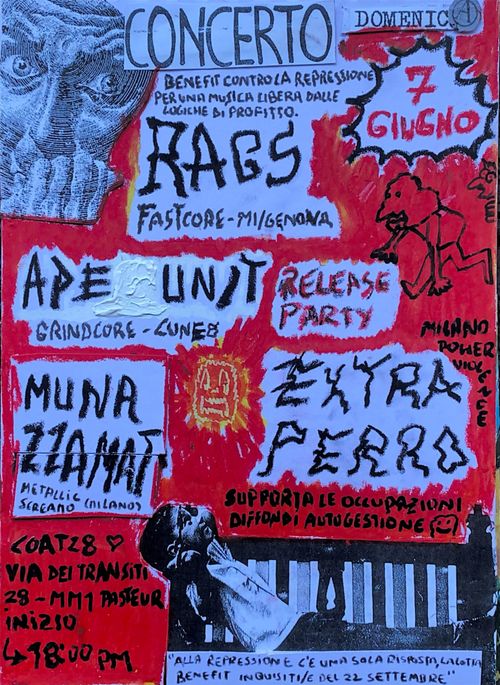 CONCERTO
DOMENICA
BENEFIT CONTRO LA REPRESSIONE
PER UNA MUSICA LIBERA DALLE
LOGICHE DI PROFITTO.
7
GIUGNO
RAGS
FASTCORE-MI/GENOVA
APE UNIT
GRINDCORE-CUNEO
RELEASE
PARTY
MUNA
ZZAMAT
METALLIC
SCREAMO (MILANO)
EXTRA
PERRO
MILANO
POWER
VIOLENCE
SUPPORTA LE OCCUPAZIONI
DIFFONDI AUTOGESTIONE
COAT28 ♡
VIA DEI TRANSITI
28-MM1 PASTEUR
INIZIO
↳ 18:00 PM
"ALLA REPRESSIONE C'È UNA SOLA RISPOSTA, LA LOTTA
BENEFIT INQUISITI/E DEL 22 SETTEMBRE"